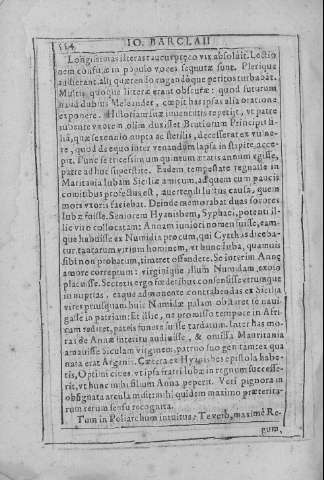 554 IO. BARCLAII
Longissimas literas rex vix absoluit. Lectio
nem confusæ in populo voces sequutæ sunt. Plerique
audierant. alij quærendo rogandóque peritos turbabát.
Multis quoque literæ erant obscuræ: quod futurum
haud dubius Meleander, cœpit has ipsas alia oratione
exponere. Historiam suæ inuentutis repetijt, vt patre
iubente vxorem olim duxisset Brutiorum Principis fi-
liâ, quæ sexennio nupta ac sterilis, decesserat ex vulne-
re, quod de equo inter venandum lapsa in stipite accepe-
pit. Tunc se tricesimum quintum ætatis annum egisse,
patre adhuc superstite. Eadem tempestate regnasse in
Maritania Iubam Siciliæ amicum, ad quem cum paucis
comitibus profectus est, auertendi luctus causa, quem
mors vxoris fecisset. Deinde memorabat duas sorores
Iubæ fuisse. Seniorem Hyanisbem, Syphaci, potenti il-
lic viro collocatam: Annam iuniori nomen fuisse, eam-
que habuisse ex Numidia procum, qui Cyrthas diceba-
tur. tantarum virium hominem, vt hunc Iuba, quamuis
sibi non probatum, timeret offendere. Se interim Annæ
amore correptum: virginique illum Numidam, exoso
placuisse. Secretis ergo fœderibus consensisse vtrumque
in nuptias, eaque admonente contrahendas ex Sicilia
vires priusquam huic Numidæ palam obstaret se naui-
gasse in patriam: Et illic, ne promisso tempore in Afri-
cam rediret, patris funere fuisse tardatum. Inter has mo-
ras de Annæ interitu audiuisse, & omissa Mauritania
amauisse Siculam virginem, patruo suo genitam ex qua
nata erat Argenis. Cætera ex Hyanisbes epistola habe-
tis, Optimi ciues, vt ipsa fratri Iubæ in regnum successe-
rit, vt hunc mihi filium Anna peperit. Veri pignora in
obsignata arcula misit mihi quidem maximo præterita-
rum rerum sensu recognita.
Tum in Poliarchum intuitus: Te verò, maximè Re-
gum,